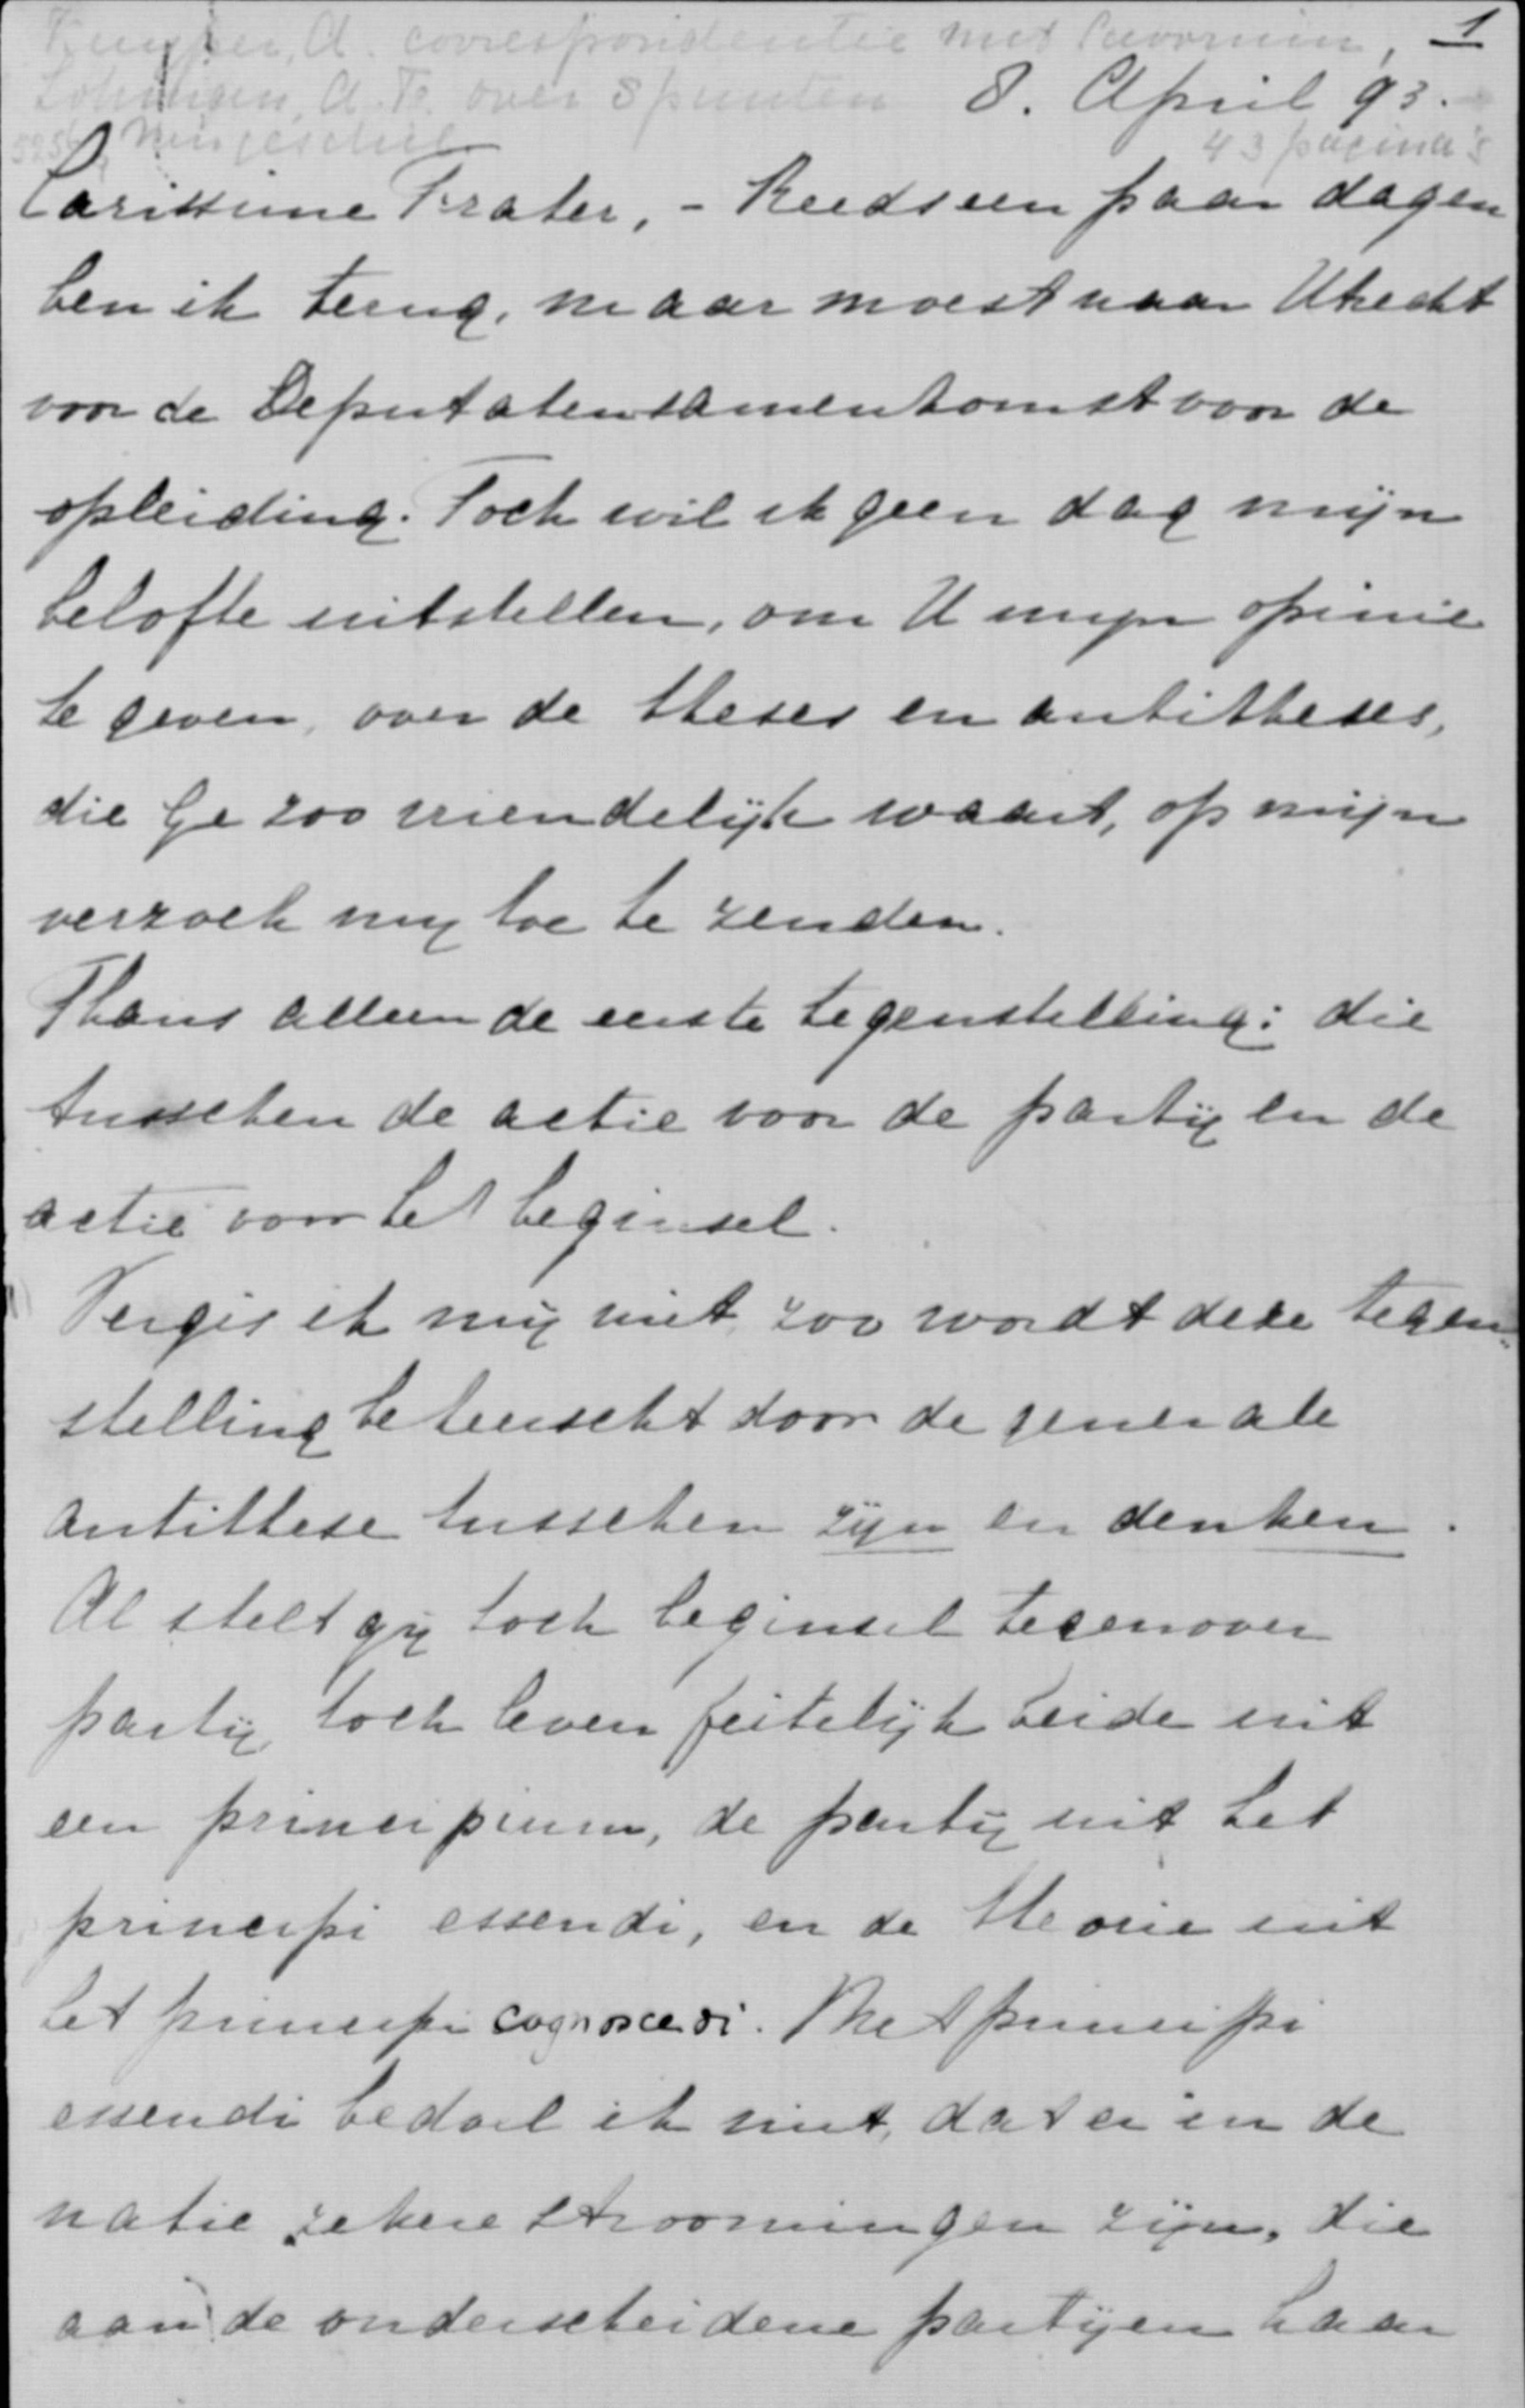 Kuyper, A. correspondentie met Savornin, 1
Lohman, A. F. over 8 punten 8. April 93.
43 pagina's
Carissime Frater, - Reeds een paar dagen
ben ik terug, maar moest naar Utrecht
voor de Deputatensamenkomst voor de
opleiding. Toch wil ik geen dag mijn
belofte uitstellen, om U mijn opinie
te geven, over de theses en antitheses,
die Ge zoo vriendelijk waart, op mijn
verzoek mij toe te zenden.
Thans alleen de eerste tegenstelling: die
tusschen de actie voor de partij en de
actie voor het beginsel.
Vergis ik mij niet, zoo wordt deze tegen-
stelling beheerscht door de generale
antithese tusschen zijn en denken.
Al stelt gij toch beginsel tegenover
partij, toch leven feitelijk beide uit
een principium, de partij uit het
principi essendi, en de theorie uit
het principi cognoscedi. Met principi
essendi bedoel ik niet, dat er in de
natie zekere stroomingen zijn, die
aan de onderscheidene partijen haar